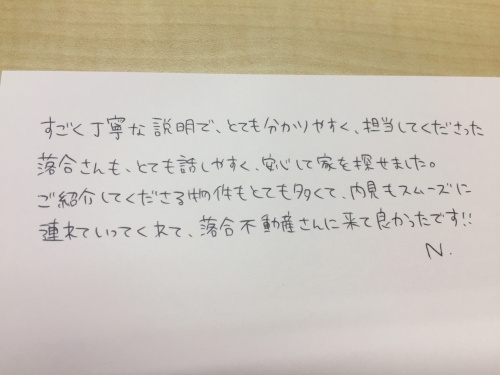 すごく丁寧な説明で、とても分かりやすく、担当してくださった
落合さんも、とても話しやすく、安心して家を探せました。
ご紹介してくださる物件もとても多くて、内見もスムーズに
連れていってくれて、落合不動産さんに来て良かったです!!
N.